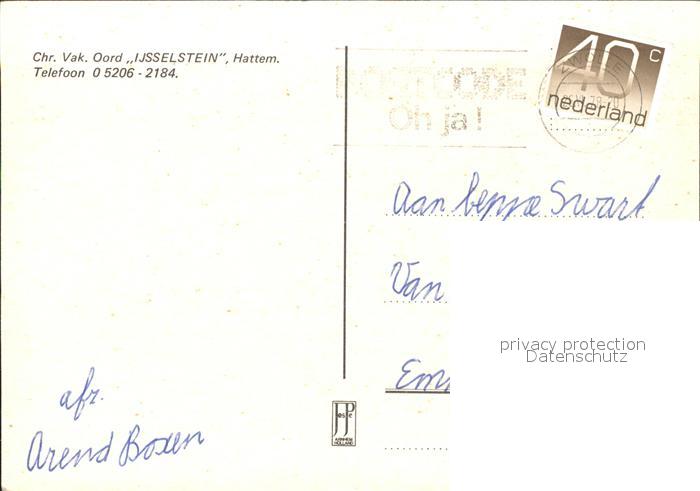 Chr. Vak. Oord „IJSSELSTEIN”, Hattem.
Telefoon 0 5206 - 2184.
POSTCODE
Oh ja!
40 c
nederland
Aan beppe Swart
Van
privacy protection
Datenschutz
afz.
Arend Boxen
ARNHEM
HOLLAND